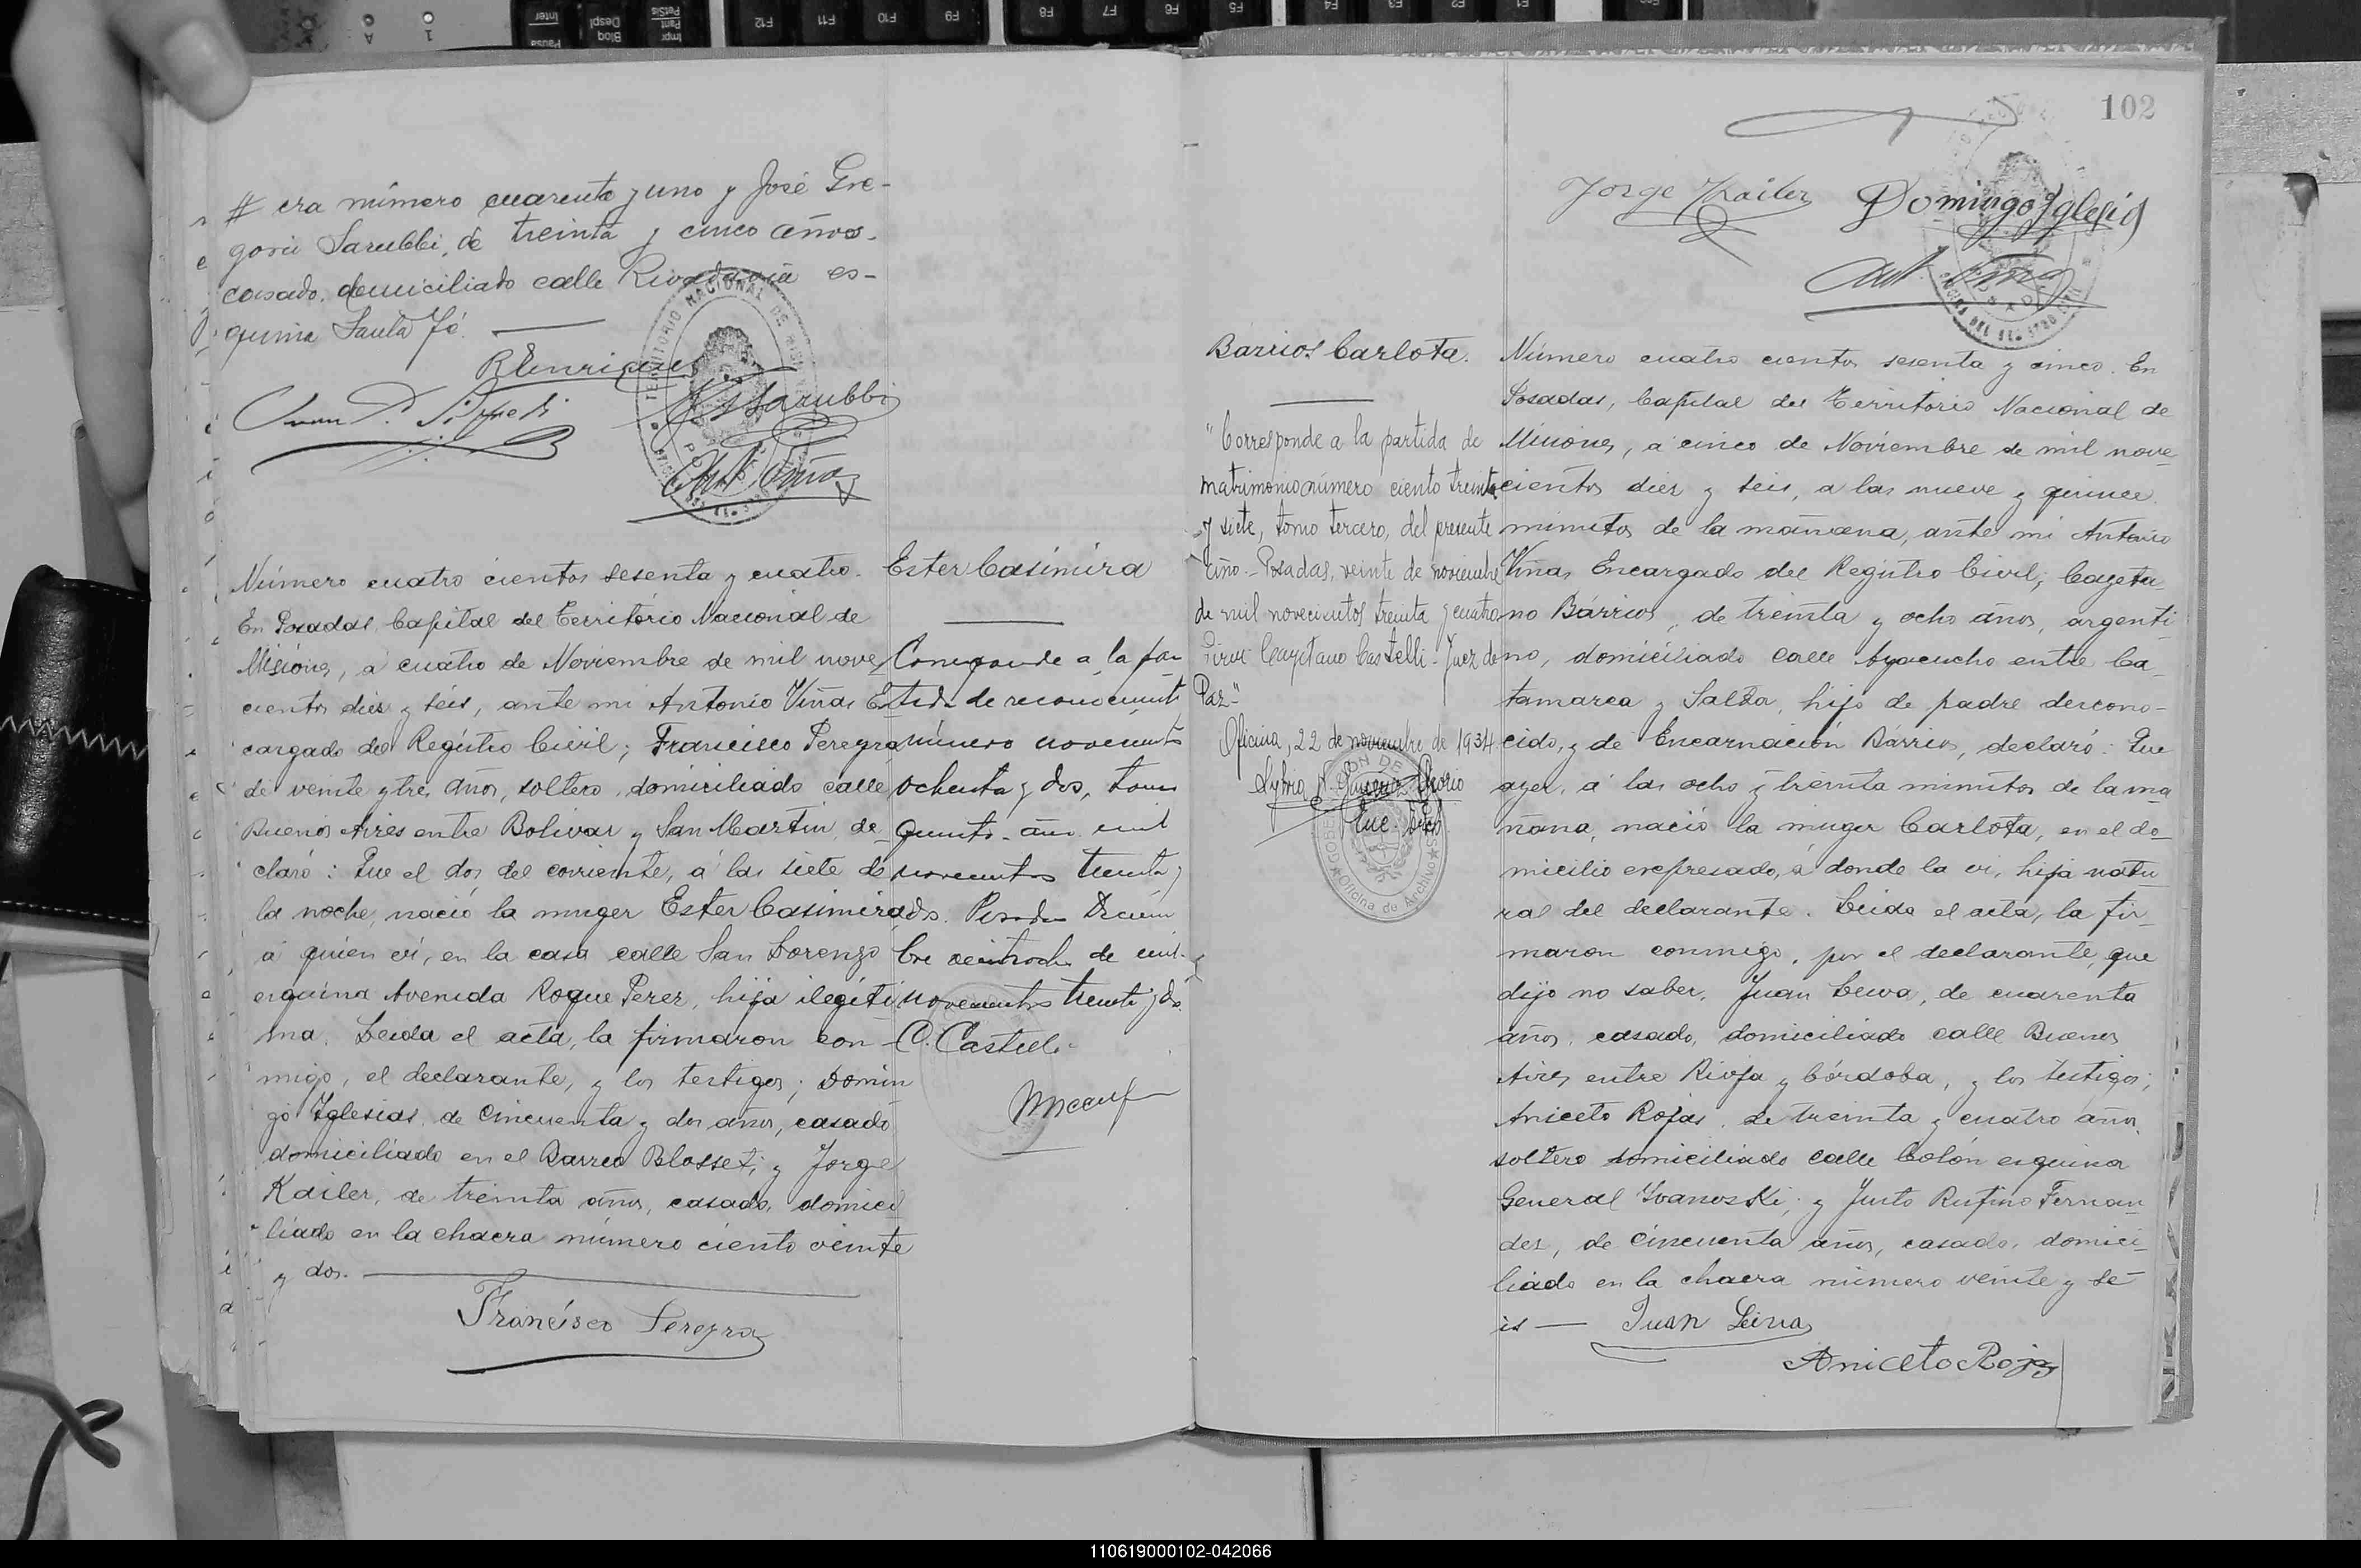 # era número cuarenta y uno y José Gre-
gorio Sarubbi, de treinta y cinco años.
casado, domiciliado calle Rivadavia es-
quina Santa Fé.
REnriquez
Sarubbi
Ant Viñas
TERRITORIO NACIONAL DE
Número cuatro cientos sesenta y cuatro.
En Posadas, Capital del Territorio Nacional de
Misiones, a cuatro de Noviembre de mil nove
cientos diez y seis, ante mi Antonio Viñas En
cargado del Registro Civil; Francisco Pereyra
de veinte y tres años, soltero, domiciliado calle
Buenos Aires entre Bolivar y San Martin, de-
claró: Que el dos del corriente, a las siete de
la noche, nació la muger Ester Casimira
a quien vi, en la casa calle San Lorenzo
esquina Avenida Roque Perez, hija ilegiti
ma. Leida el acta, la firmaron con-
migo, el declarante, y los testigos; Domin
go Iglesias, de cincuenta y dos años, casado
domiciliado en el Barrio Blosset; y Jorge
Kailer, de treinta años, casado, domici
liado en la chacra número ciento veinte
y dos.
Francisco Pereyra
Ester Casimira
Corresponde a la par
tida de reconocimiento
número novecientos
ochenta y dos, tomo
quinto - año mil
novecientos treinta y
dos. Posadas Diciem
bre veintiocho de mil
novecientos treinta y dos.
C. Castelli
102
Jorge Kailer Domingo Iglesias
Ant Viñas
Barrios Carlota.
"Corresponde a la partida de
matrimonio número ciento treinta
y siete, tomo tercero, del presente
año.- Posadas, veinte de noviembre
de mil novecientos treinta y cuatro
Firm. Cayetano Castelli - Juez de
Paz."
Oficina, 22 de noviembre de 1934
Oficina de Archivo
Número cuatro cientos sesenta y cinco. En
Posadas, Capital del Territorio Nacional de
Misiones, a cinco de Noviembre de mil nove-
cientos diez y seis, a las nueve y quince
minutos de la mañana, ante mi Antonio
Viñas Encargado del Registro Civil; Cayeta
no Bárrios, de treinta y ocho años, argenti
no, domiciliado calle Ayacucho entre Ca-
tamarca y Salta, hijo de padre descono-
cido, y de Encarnación Bárrios, declaró: Que
ayer, a las ocho y treinta minutos de la ma
ñana, nació la muger Carlota, en el do-
micilio expresado, a donde la vi, hija natu
ral del declarante. Leida el acta, la fir-
maron conmigo, por el declarante, que
dijo no saber, Juan Leiva, de cuarenta
años, casado, domiciliado calle Buenos
Aires entre Rioja y Córdoba, y los testigos;
Aniceto Rojas, de treinta y cuatro años,
soltero domiciliado calle Colón esquina
General Ivanoski; y Justo Rufino Fernan
dez, de cincuenta años, casado, domici-
liado en la chacra número veinte y se-
is — Juan Leiva
Aniceto Rojas
110619000102-042066